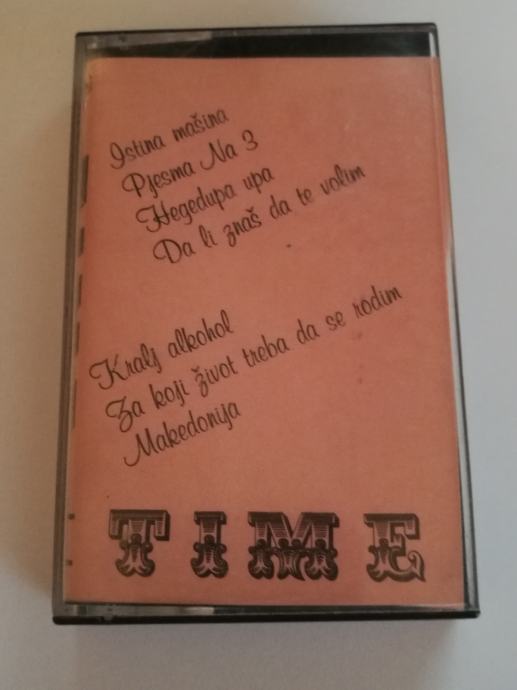 Istina mašina
Pjesma Na 3
Hegedupa upa
Da li znaš da te volim
Kralj alkohol
Za koji život treba da se rodim
Makedonija
TIME